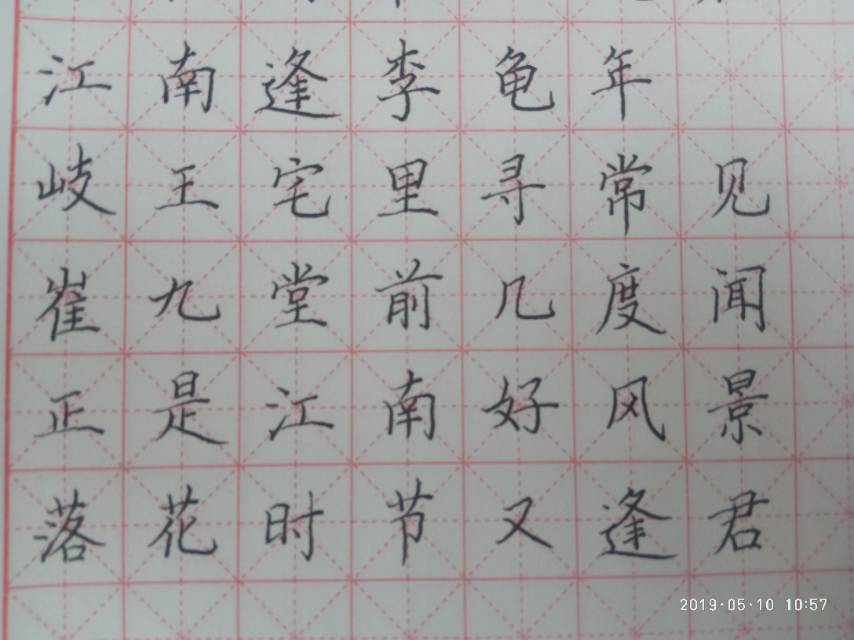 江南逢李龟年
岐王宅里寻常见
崔九堂前几度闻
正是江南好风景
落花时节又逢君
2019·05·10 10:57